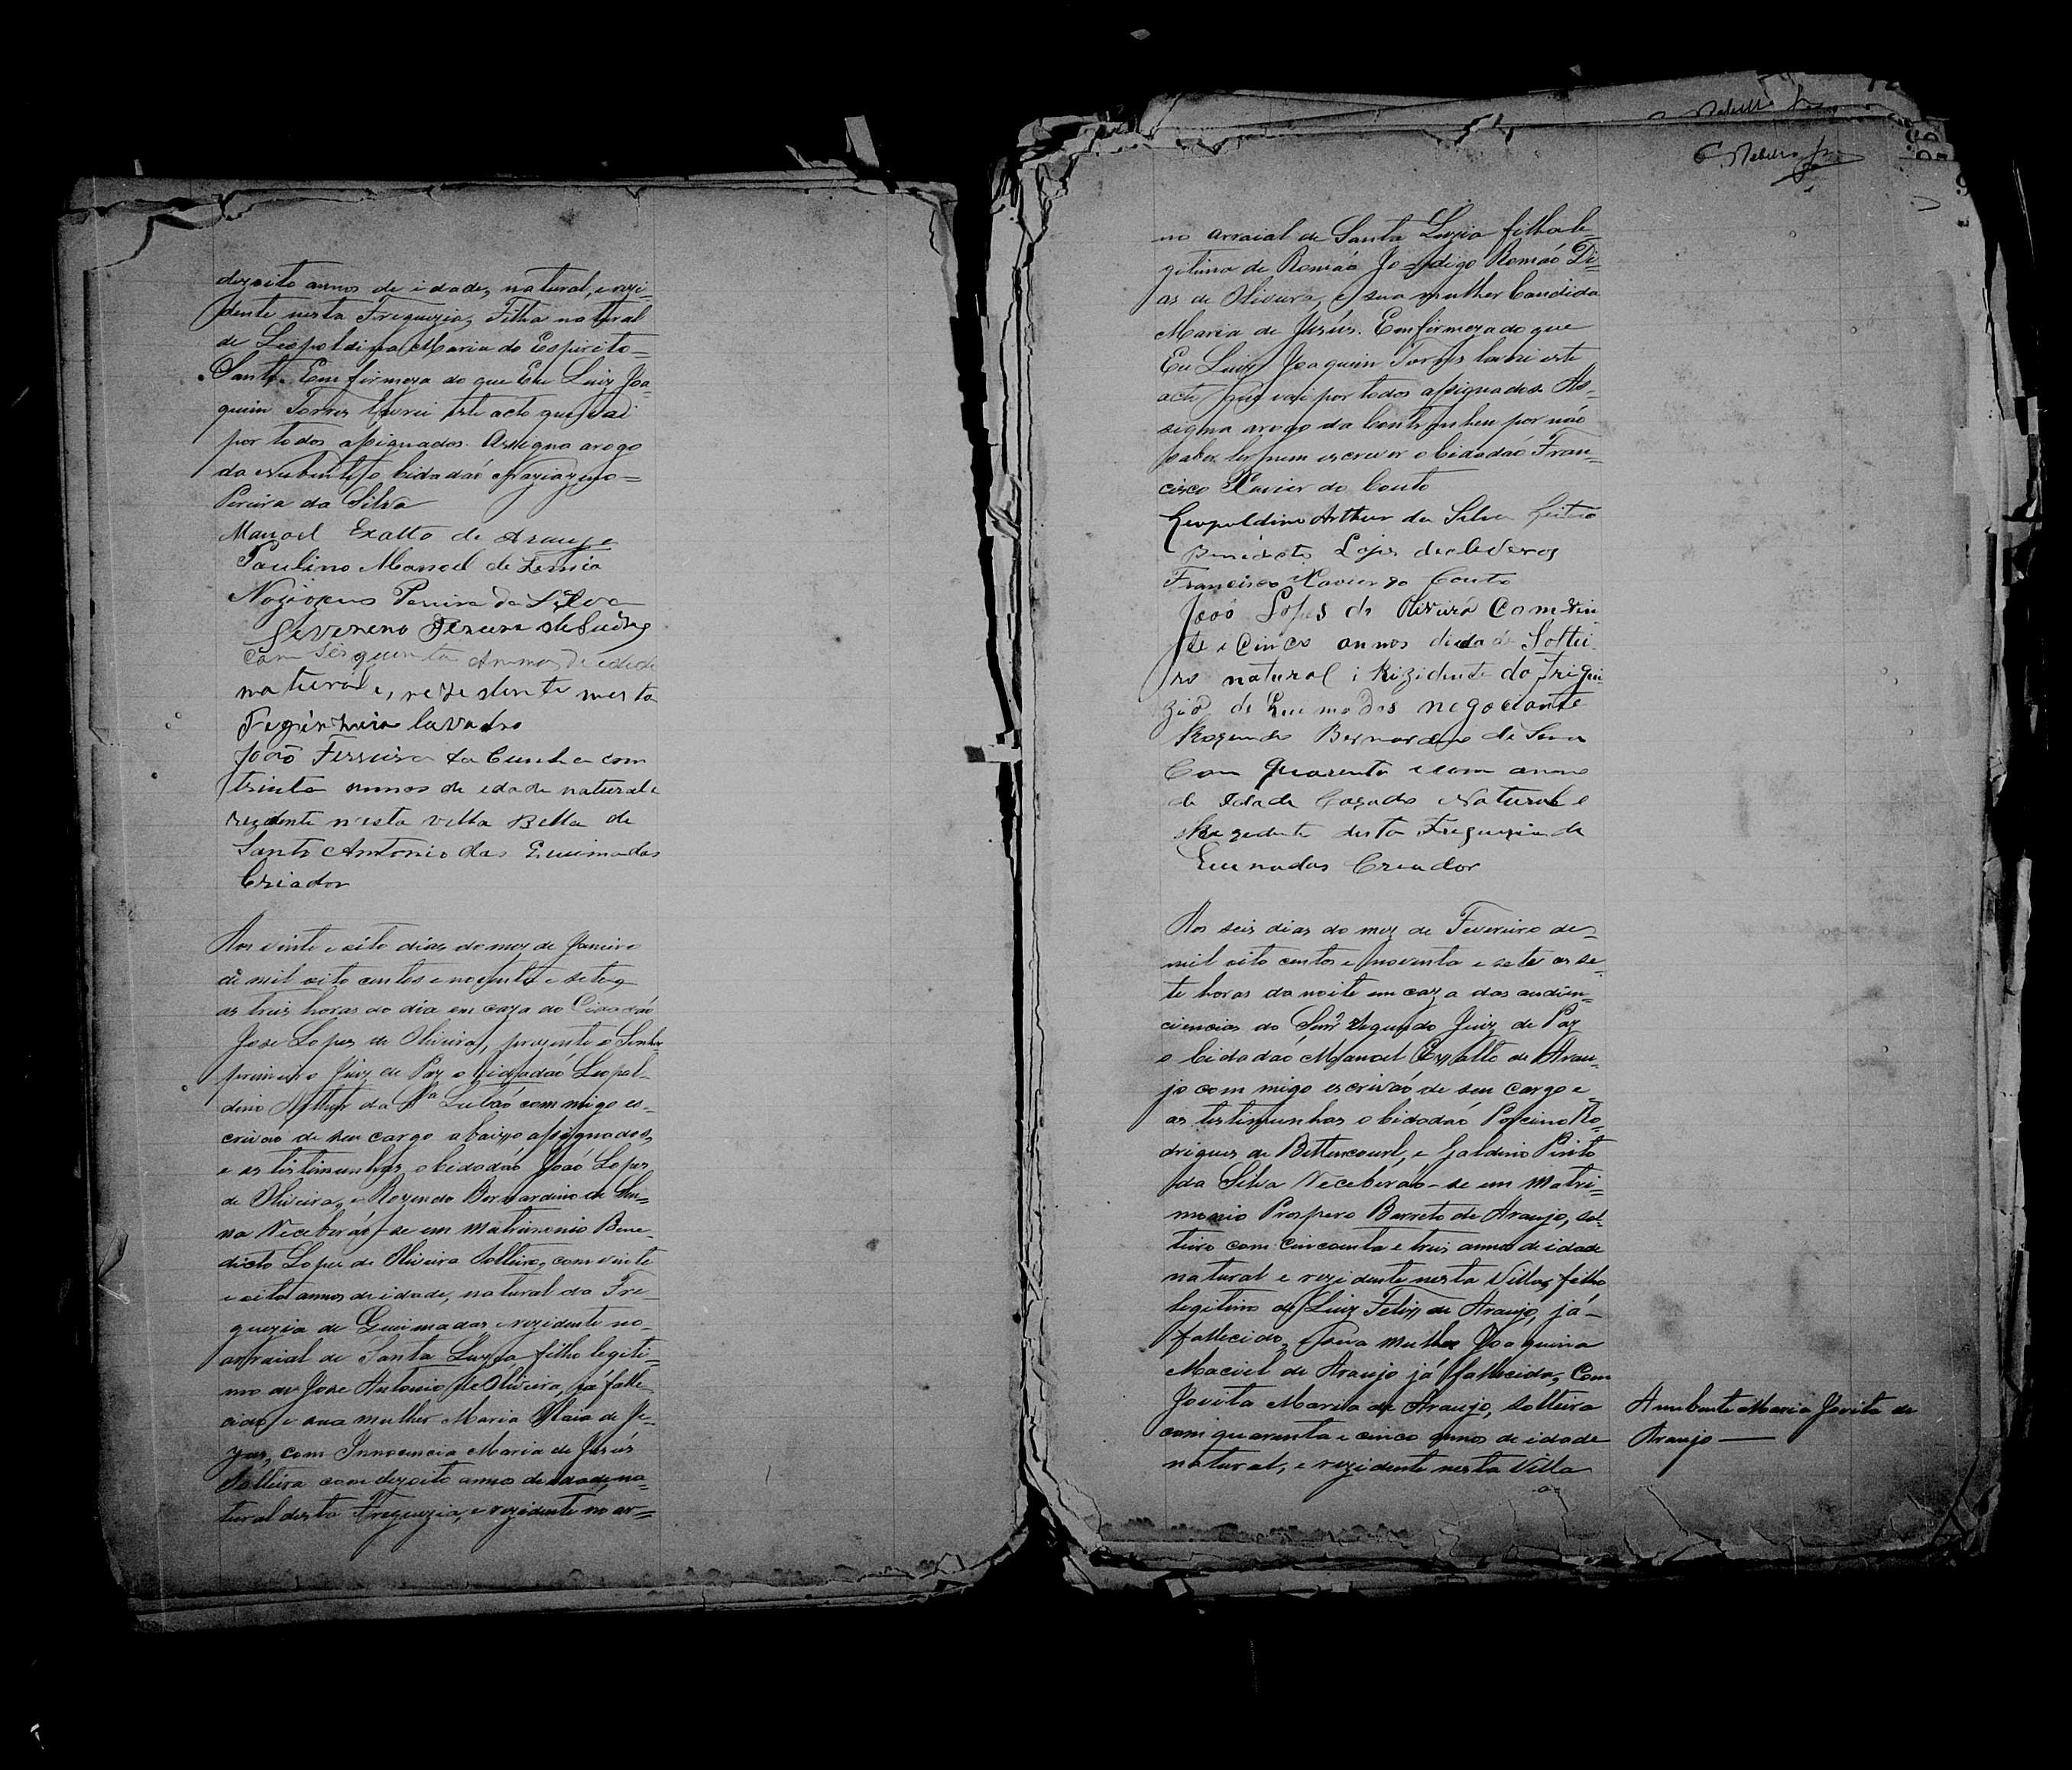 dezoito annos de idade, natural, e rezi-
dente nesta Freguezia, Filha natural
de Leopoldina Maria do Espirito=
Santo. Em firmeza do que Eu Luiz Joa-
quim Torres lavrei este acto que vai
por todos assignados. Assigna arogo
da Nubente o Cidadaõ Naziazeno=
Pereira da Silva
Manoel Exalto de Araujo
Paulino Manoel de
Pereira da Silva
Severeno
com annos de idade
natural e, rezedente nesta
lavrador
João Ferreira da Cunha com
trinta annos de idade natural e
rezidente n'esta villa Bella de
Santo Antonio das Queimadas
Criador
Aos vinte e oito dias do mez de Janeiro
de mil oito centos e noventa e sete,
as tres horas do dia em caza do Cidadaõ
Jose Lopes de Oliveira, prezente o Senhor
primeiro Juiz de Paz o Cidadaõ Leopol-
dino Arthur da Sª Leitaõ com migo es-
crivaõ de seu cargo abaixo assignados,
e as testimunhas o Cidadaõ Joaõ Lopes
de Oliveira, e Rozendo Bernardino de Sen=
na Receberaõ-se em matrimonio Bene-
dicto Lopes de Oliveira Solteiro, com vinte
e oito annos de idade, natural da Fre-
guezia de Queimadas e rezidente no-
arraial de Santa Luzia filho legiti=
mo de Jose Antonio de Oliveira, já falle-
cido, e sua mulher Maria de Je-
zus, com Innocencia Maria de Jesús
Solteira com dezoito annos de idade, na-
tural desta Freguezia, e rezidente no ar=
no arraial de Santa Luzia filha le-
gitima de Romaõ Jo digo Romaõ Di=
as de Oliveira, e sua mulher Candida
Maria de Jesús. Em firmeza do que
Eu Luiz Joaquim Torres lavrei este
acto que vai por todos assignados. As-
signa arogo da Contrahen por não
saber ler nem escrever o Cidadaõ Fran=
cisco Xavier do Couto
Leopoldino Arthur da Silva Leitão
Benedicto Lopes de
Francisco Xavier do Couto
João Lopes de Oliveira Com vin
te e Cinco annos de idade Soltei
ro natural i Rizidente da Frigui
zia de Queimadas negociante
Rozendo Bernardino de Sena
Com Quarenta e um anno
de Idade Cazado Natural e
Rezedente desta Freguezia de
Queimadas Creador
Aos seis dias do mez de Fevereiro de
mil oito centos e noventa e sete as se-
te horas da noite em caza das audien=
ciencias do Senr. segundo Juiz de Paz
o Cidadaõ Manoel Exalto de Arau-
jo com migo escrivaõ de seu cargo e
as testimunhas o Cidadaõ Porcino Ro=
drigues de Bittencourt, e Galdino Pinto
da Silva Receberaõ-se em matri=
monio Prospero Barreto de Araujo, sol-
teiro com cincoenta e tres annos de idade
natural e rezidente nesta Villa, filho
legitimo de Luiz Felix de Araujo, já-
fallecido, e sua mulher Joaquina
Maciel de Araujo já fallecida, Com
Jovita Maria de Araujo, solteira
com quarenta e cinco annos de idade
natural, e rezidente nesta Villa
A nubente Maria Jovita de
Araujo —